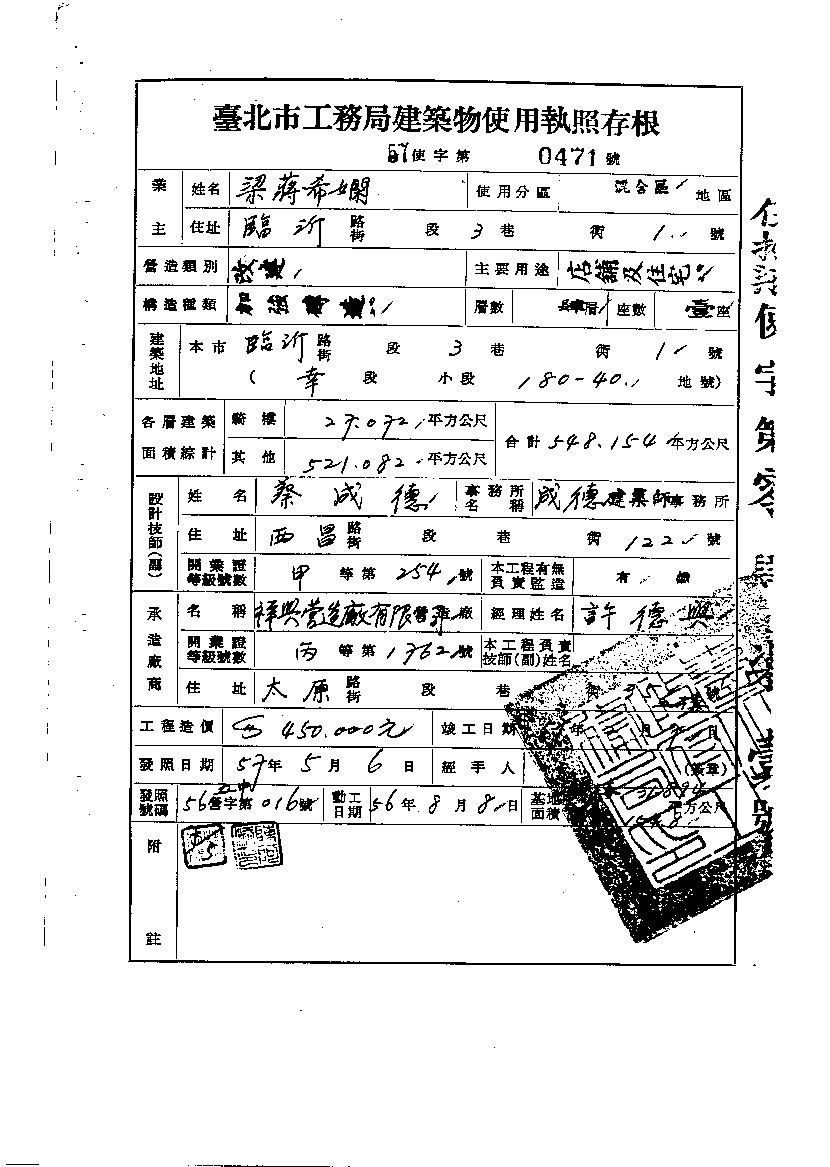 臺北市工務局建築物使用執照存根
57使字第 0471 號
業主 姓名 梁蔣希嫻 使用分區 混合區 地區
住址 臨沂 路街 段 3 巷 街 1 號
營造類別 改建 主要用途 店舖及住宅
構造種類 加強磚造 層數 肆層 座數 座
建築地址 本市 臨沂 路街 段 3 巷 街 1 號
( 幸 段 小段 180-40 地號)
各層建築面積綜計 騎樓 27.072 平方公尺 合計 548.154 平方公尺
其他 521.082 平方公尺
設計技師(副) 姓名 蔡成德 事務所名稱 成德建築師事務所
住址 西昌 路街 段 巷 街 122 號
開業證等級號數 甲 等第 254 號 本工程有無負責監造 有
承造廠商 名稱 祥興營造廠有限 廠 經理姓名 許德興
開業證等級號數 丙 等第 1362 號 本工程負責技師(副)姓名
住址 太原 路街 段 巷 街
工程造價 450.000元 竣工日期 年 月 日
發照日期 57年 5 月 6 日 經手人 (簽章)
發照號碼 56營字第016號 動工日期 56年 8 月 8 日 基地面積 平方公尺
附註
使字第零